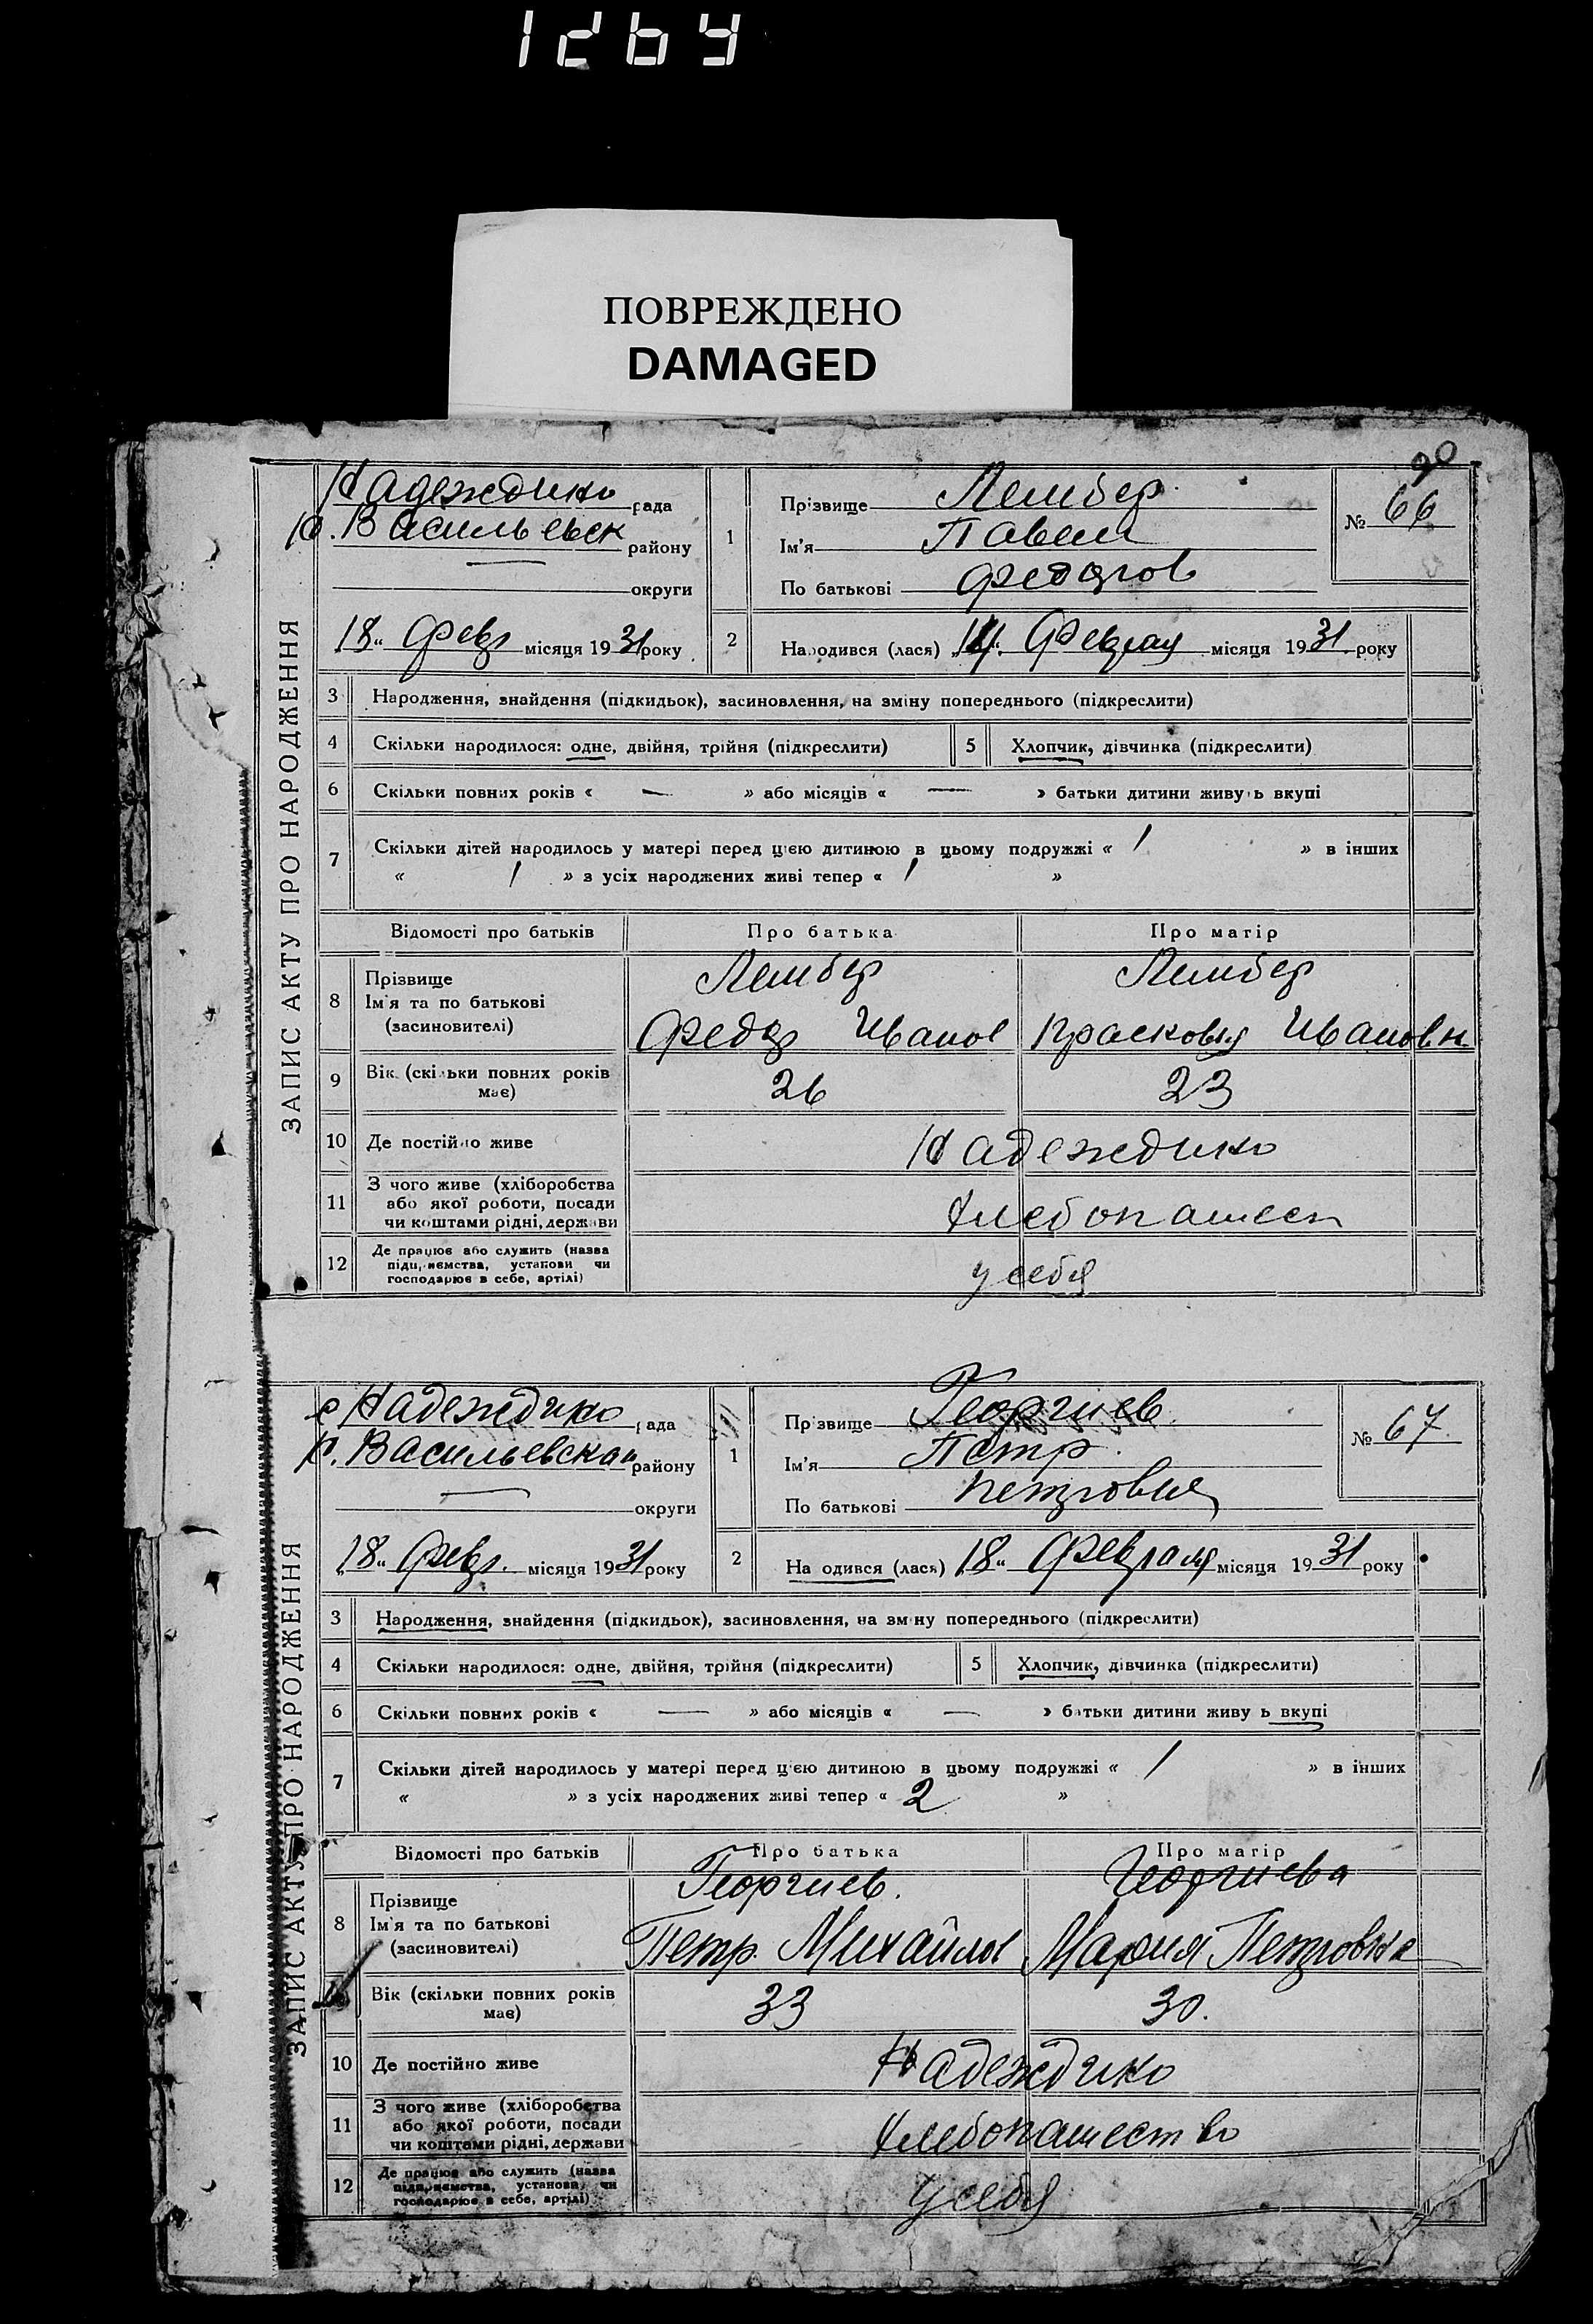 1264
ПОВРЕЖДЕНО
DAMAGED
90
ЗАПИС АКТУ ПРО НАРОДЖЕННЯ
Надеждико рада
Васильевск району
округи
18 Февр місяця 1931 року
1
Прізвище Лембер
Ім'я Павел
По батькові Федоров
№ 66
2 Народився (лася) 14 Февраля місяця 1931 року
3 Народження, знайдення (підкидьок), засиновлення, на зміну попереднього (підкреслити)
4 Скільки народилося: одне, двійня, трійня (підкреслити) 5 Хлопчик, дівчинка (підкреслити)
6 Скільки повних років « — » або місяців « — » батьки дитини живуть вкупі
7 Скільки дітей народилось у матері перед цією дитиною в цьому подружжі « 1 » в інших
« 1 » з усіх народжених живі тепер « 1 »
Відомості про батьків Про батька Про матір
8 Прізвище Лембер Лембер
Ім'я та по батькові
(засиновителі) Федор Иванов Прасковья Ивановн
9 Вік (скільки повних років має) 26 23
10 Де постійно живе Надеждико
11 З чого живе (хліборобства
або якої роботи, посади
чи коштами рідні, держави Хлебопашест
12 Де працює або служить (назва
підприємства, установи чи
господарює в себе, артілі) у себя
ЗАПИС АКТУ ПРО НАРОДЖЕННЯ
с Надеждико рада
Васильевская району
округи
18 Февр. місяця 1931 року
1
Прізвище Георгиев
Ім'я Петр
По батькові Петрович
№ 67
2 Народився (лася) 18 Февраля місяця 1931 року
3 Народження, знайдення (підкидьок), засиновлення, на зміну попереднього (підкреслити)
4 Скільки народилося: одне, двійня, трійня (підкреслити) 5 Хлопчик, дівчинка (підкреслити)
6 Скільки повних років « — » або місяців « — » батьки дитини живуть вкупі
7 Скільки дітей народилось у матері перед цією дитиною в цьому подружжі « 1 » в інших
« » з усіх народжених живі тепер « 2 »
Відомості про батьків Про батька Про матір
8 Прізвище Георгиев. Георгиева
Ім'я та по батькові
(засиновителі) Петр Михайлов Мария Петровна
Вік (скільки повних років має) 33 30.
10 Де постійно живе Надеждико
11 З чого живе (хліборобства
або якої роботи, посади
чи коштами рідні, держави Хлебопашество
12 Де працює або служить (назва
підприємства, установа чи
господарює в себе, артілі) у себя